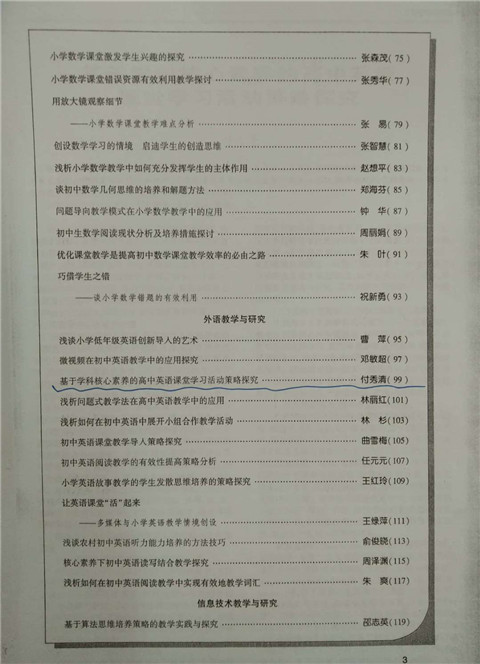 小学数学课堂激发学生兴趣的探究 …… 张森茂(75)
小学数学课堂错误资源有效利用教学探讨 …… 张秀华(77)
用放大镜观察细节
——小学数学课堂教学难点分析 …… 张 易(79)
创设数学学习的情境 启迪学生的创造思维 …… 张智慧(81)
浅析小学数学教学中如何充分发挥学生的主体作用 …… 赵想平(83)
谈初中数学几何思维的培养和解题方法 …… 郑海芬(85)
问题导向教学模式在小学数学教学中的应用 …… 钟 华(87)
初中生数学阅读现状分析及培养措施探讨 …… 周丽娟(89)
优化课堂教学是提高初中数学课堂教学效率的必由之路 …… 朱 叶(91)
巧借学生之错
——谈小学数学错题的有效利用 …… 祝新勇(93)
外语教学与研究
浅谈小学低年级英语创新导入的艺术 …… 曹 萍(95)
微视频在初中英语教学中的应用探究 …… 邓敏超(97)
基于学科核心素养的高中英语课堂学习活动策略探究 …… 付秀清(99)
浅析问题式教学法在高中英语教学中的应用 …… 林丽红(101)
浅析如何在初中英语中展开小组合作教学活动 …… 林 杉(103)
初中英语课堂教学导入策略探究 …… 曲雪梅(105)
初中英语阅读教学的有效性提高策略分析 …… 任元元(107)
小学英语故事教学的学生发散思维培养的策略探究 …… 王红玲(109)
让英语课堂“活”起来
——多媒体与小学英语教学情境创设 …… 王绿萍(111)
浅谈农村初中英语听力能力培养的方法技巧 …… 俞俊晓(113)
核心素养下初中英语读写结合教学探究 …… 周泽渊(115)
浅析如何在初中英语阅读教学中实现有效地教学词汇 …… 朱 爽(117)
信息技术教学与研究
基于算法思维培养策略的教学实践与探究 …… 邵志英(119)
3